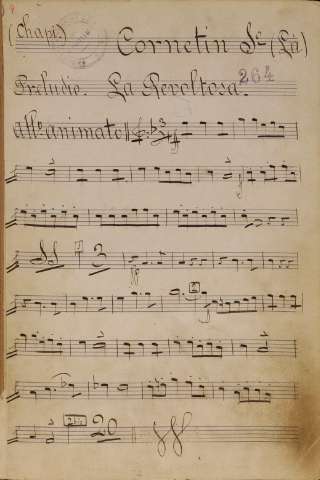 (Chapí.) Cornetin 1º (La)
Preludio. La Revoltosa. 264
all.º animato
ff
3
ff
2
20